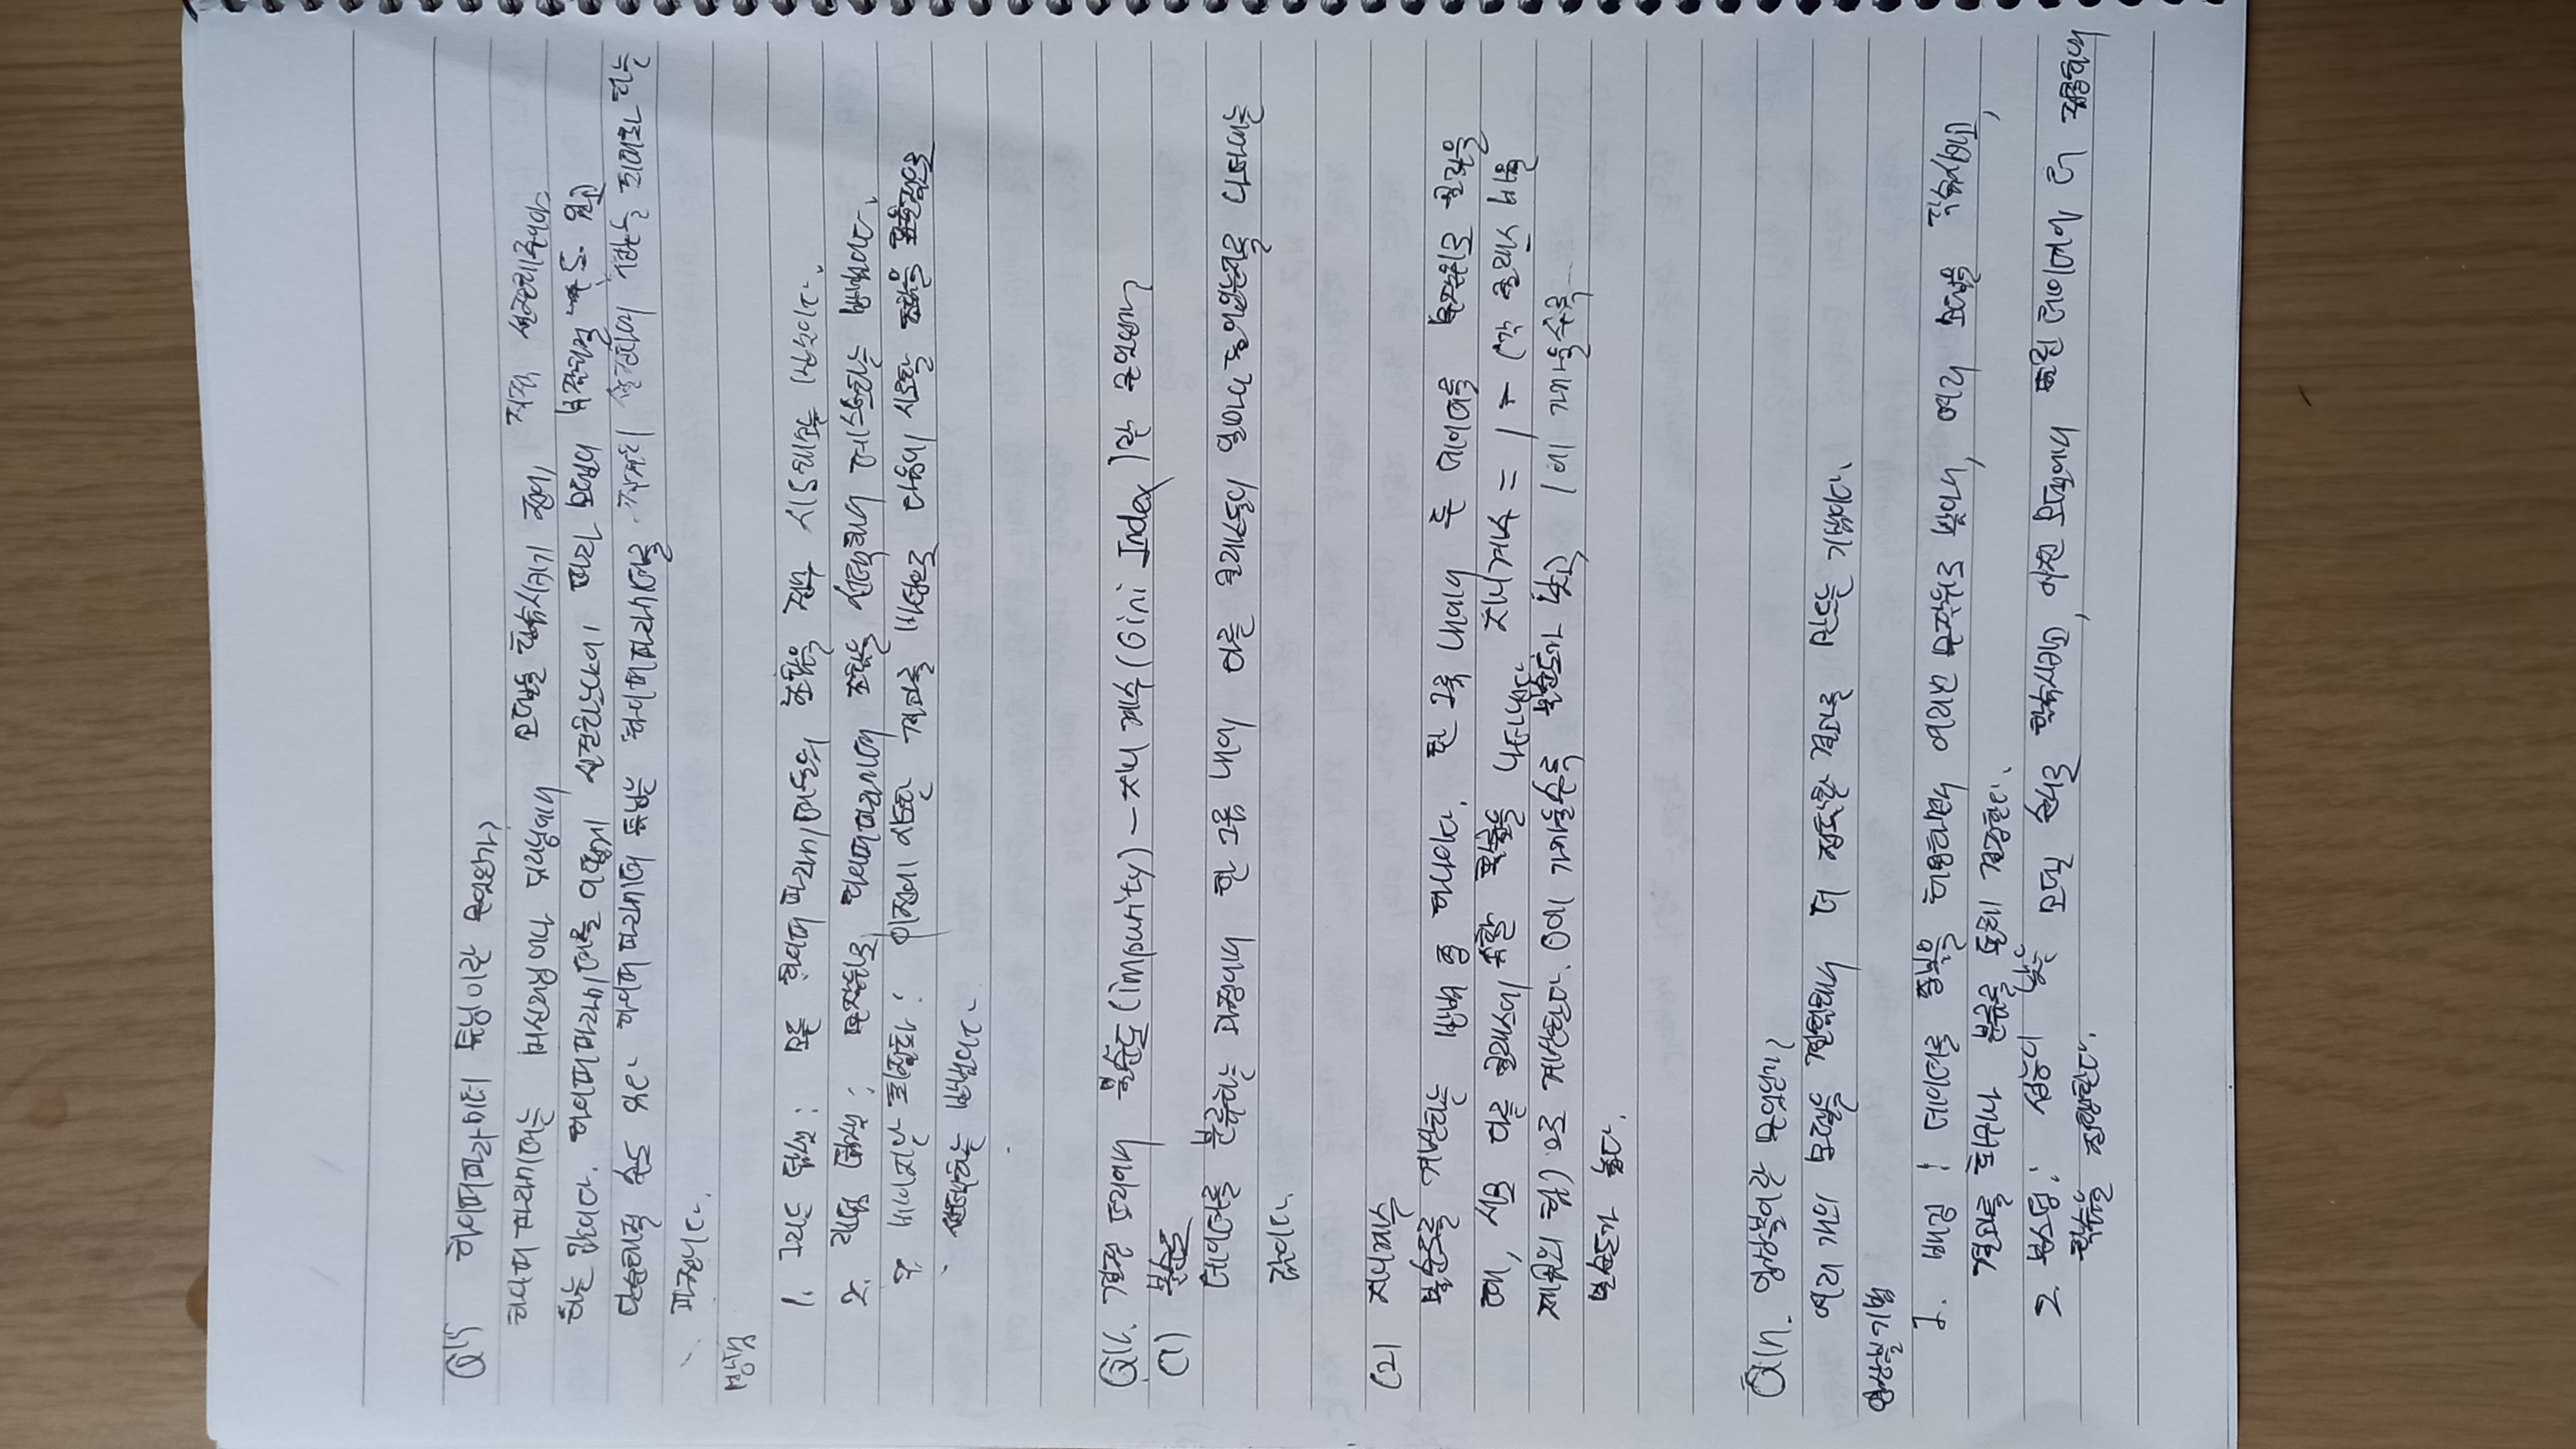 Q15 하이퍼파라미터 튜닝이란 무엇인가?
하이퍼 파라미터는 머신러닝이나 딥러닝에서 모델을 학습시키기 전에, 직접 설정해주어야
하는 값이다. 하이퍼파라미터를 어떻게 설정하느냐에 따라 모델이 복잡해질 수도 있고
단순해질 수도 있다. 하이퍼 파라미터 튜닝는 하이퍼파라미터를 적절히 설정하여 성능을 최대화 하는
과정이다.
방법
1. 그리드 탐색: 모든 하이퍼 파라미터들의 조합을 전부 시도해보는 방식이다.
2. 랜덤 탐색: 무작위로 하이퍼파라미터 조합을 선택하여 테스트하는 방법이다.
3. 베이지안 최적화: 이전에 시도한 결과를 바탕으로 다음에 시도할 조합을 효율적으로
선택하는 방법이다.
Q16. 결정 트리에서 불순도(impurity) – 지니 계수(Gini Index)란 무엇인가?
(1) 불순도
데이터를 분류하는 과정에서 한 그룹 내에 다른 클래스들이 얼마나 들어있는지를 나타내는
값이다.
(2) 지니계수
불순도를 계산하는 방법 중 하나이다. 한 그룹 내에서 두 데이터를 무작위로 골랐을
때, 서로 다른 클래스에 속할 확률을 나타낸다. 지니계수 = 1 - (각 클래스 비율
제곱의 합)으로 계산한다. 0에 가까울수록 불순도가 낮고, 1에 가까울수록
불순도가 높다.
Q17. 앙상블이란 무엇인가?
여러 개의 모델을 결합해서 더 정확한 결과를 만드는 기법이다.
앙상블 기법
1. 배깅: 데이터를 중복을 허용하면서 여러번 무작위로 뽑아서, 여러 모델을 학습시키고,
결과를 회귀나 분류를 통해 결정한다.
2. 부스팅: 성능이 낮은 모델 순서로 학습시키고, 이전 모델에서 틀린 데이터에 더 집중하여
학습을 진행한다.